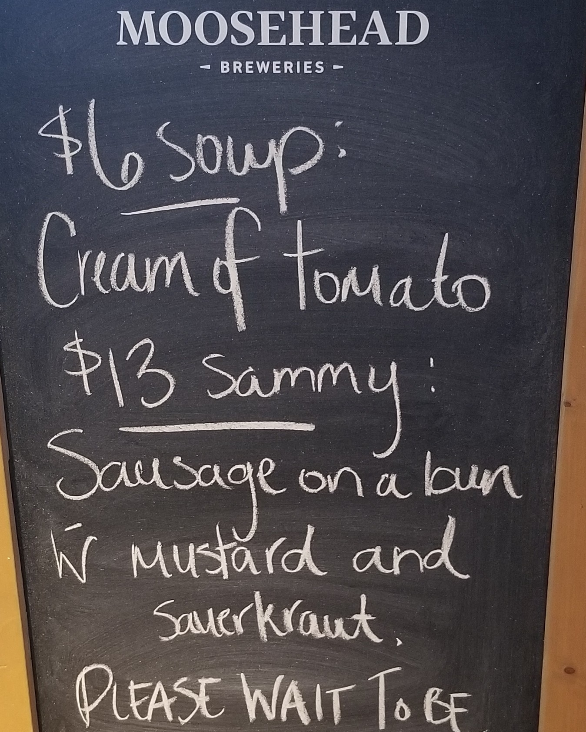 MOOSEHEAD
BREWERIES
$6 Soup:
Cream of tomato
$13 Sammy:
Sausage on a bun
w̄ mustard and
Sauerkraut.
PLEASE WAIT TO BE